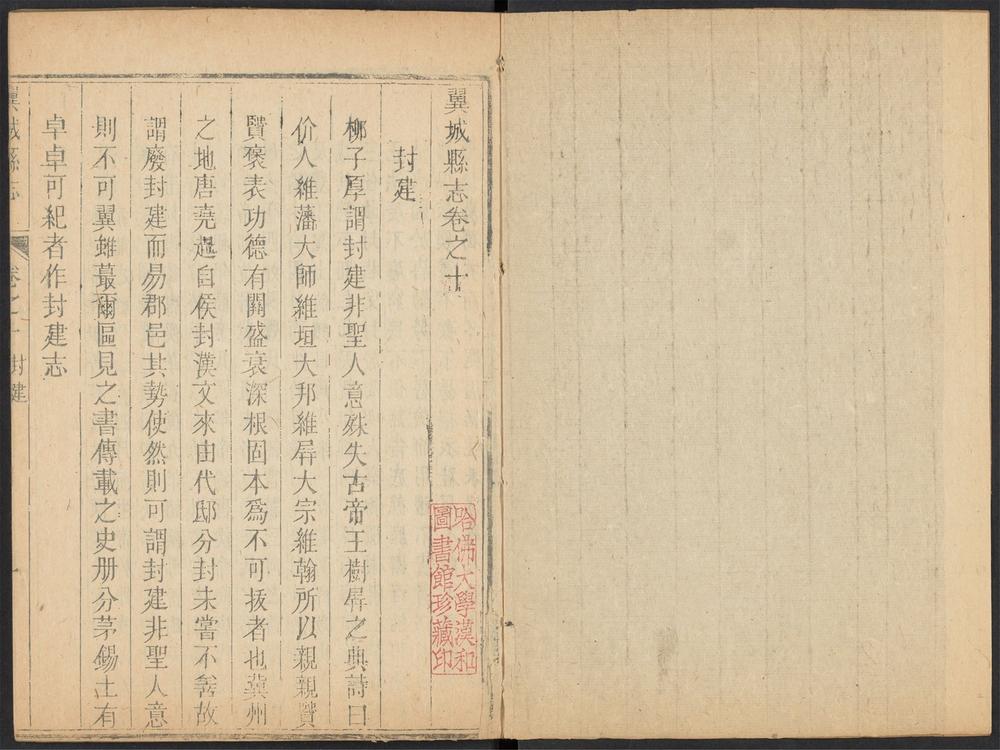 翼城縣志卷之十
封建
柳子厚謂封建非聖人意殊失古帝王樹屏之典詩曰
价人維藩大師維垣大邦維屏大宗維翰所以親親賢
賢褒表功德有關盛衰深根固本為不可拔者也冀州
之地唐堯起自侯封漢文來由代邸分封未嘗不善故
謂廢封建而易郡邑其勢使然則可謂封建非聖人意
則不可翼雖蕞爾區見之書傳載之史册分茅錫土有
卓卓可紀者作封建志
翼城縣志
卷之十
封建
哈佛大學漢和
圖書館珍藏印